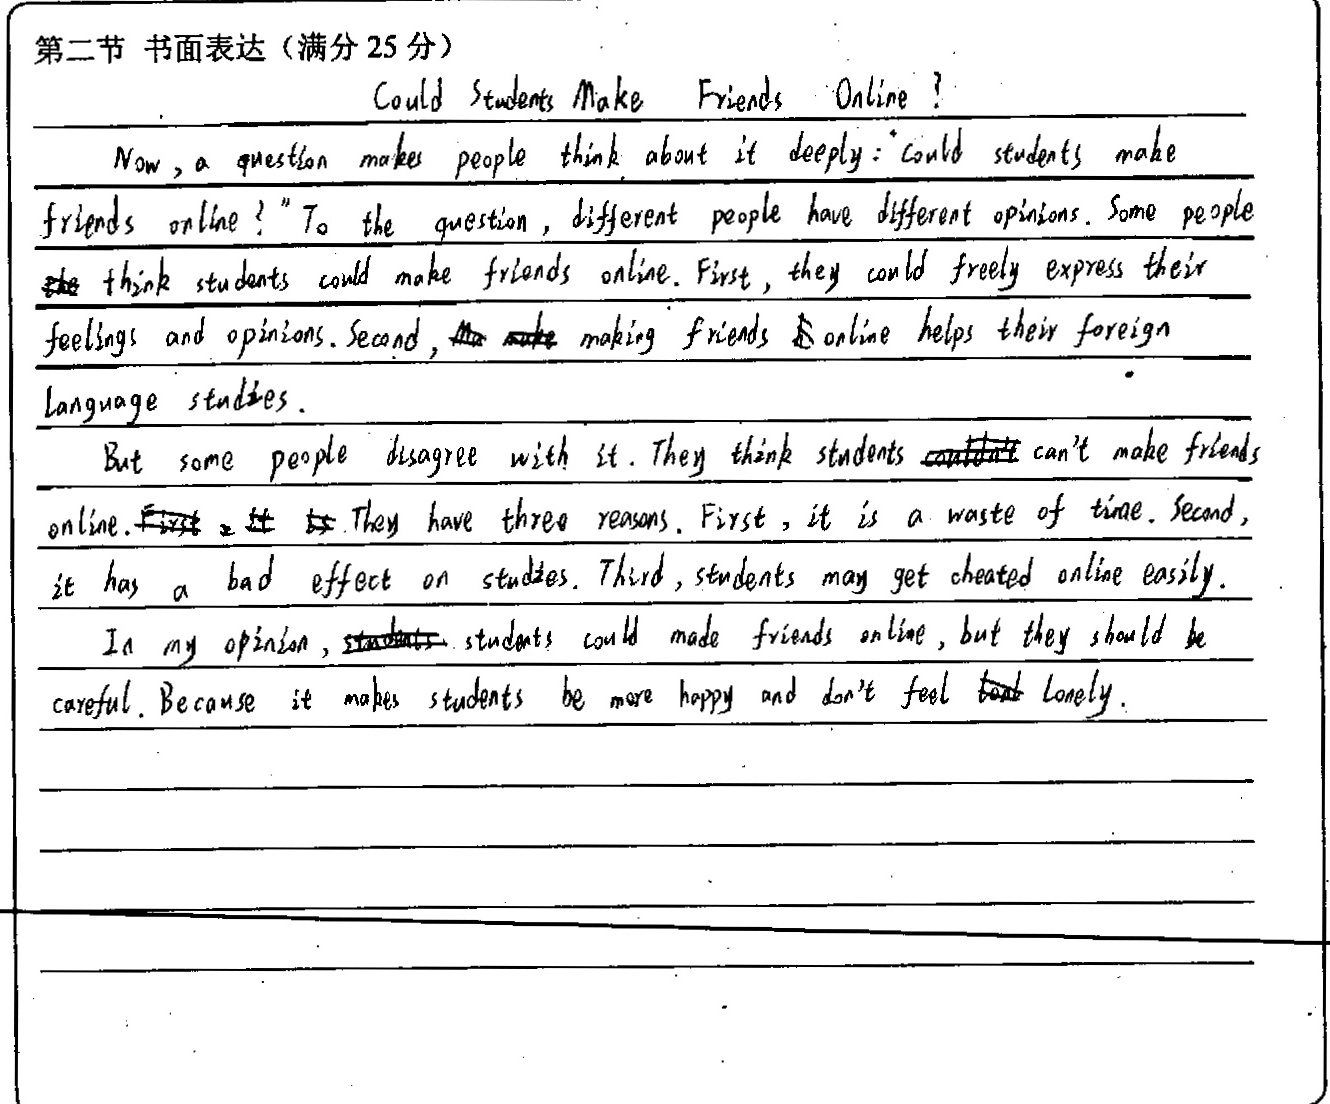 第二节 书面表达（满分 25 分）
Could Students Make Friends Online ?
Now, a question makes people think about it deeply: "Could students make
friends online ? " To the question, different people have different opinions. Some people
think students could make friends online. First, they could freely express their
feelings and opinions. Second, making friends online helps their foreign
language studies.
But some people disagree with it. They think students can't make friends
online. They have three reasons. First, it is a waste of time. Second,
it has a bad effect on studies. Third, students may get cheated online easily.
In my opinion, students could made friends online, but they should be
careful. Because it makes students be more happy and don't feel lonely.